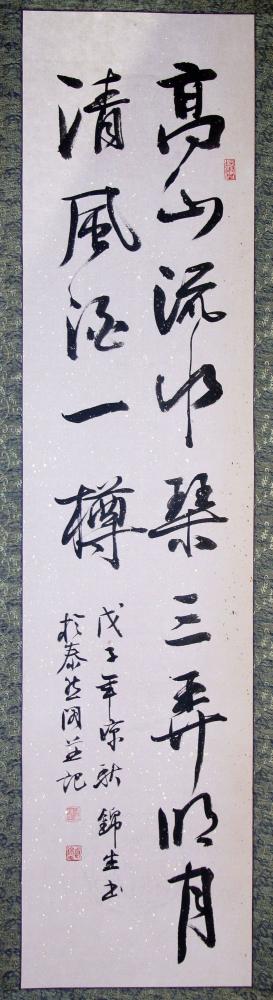 高山流水琴三弄明月
清風酒一樽
戊子年深秋錦生书
於泰然閣並记